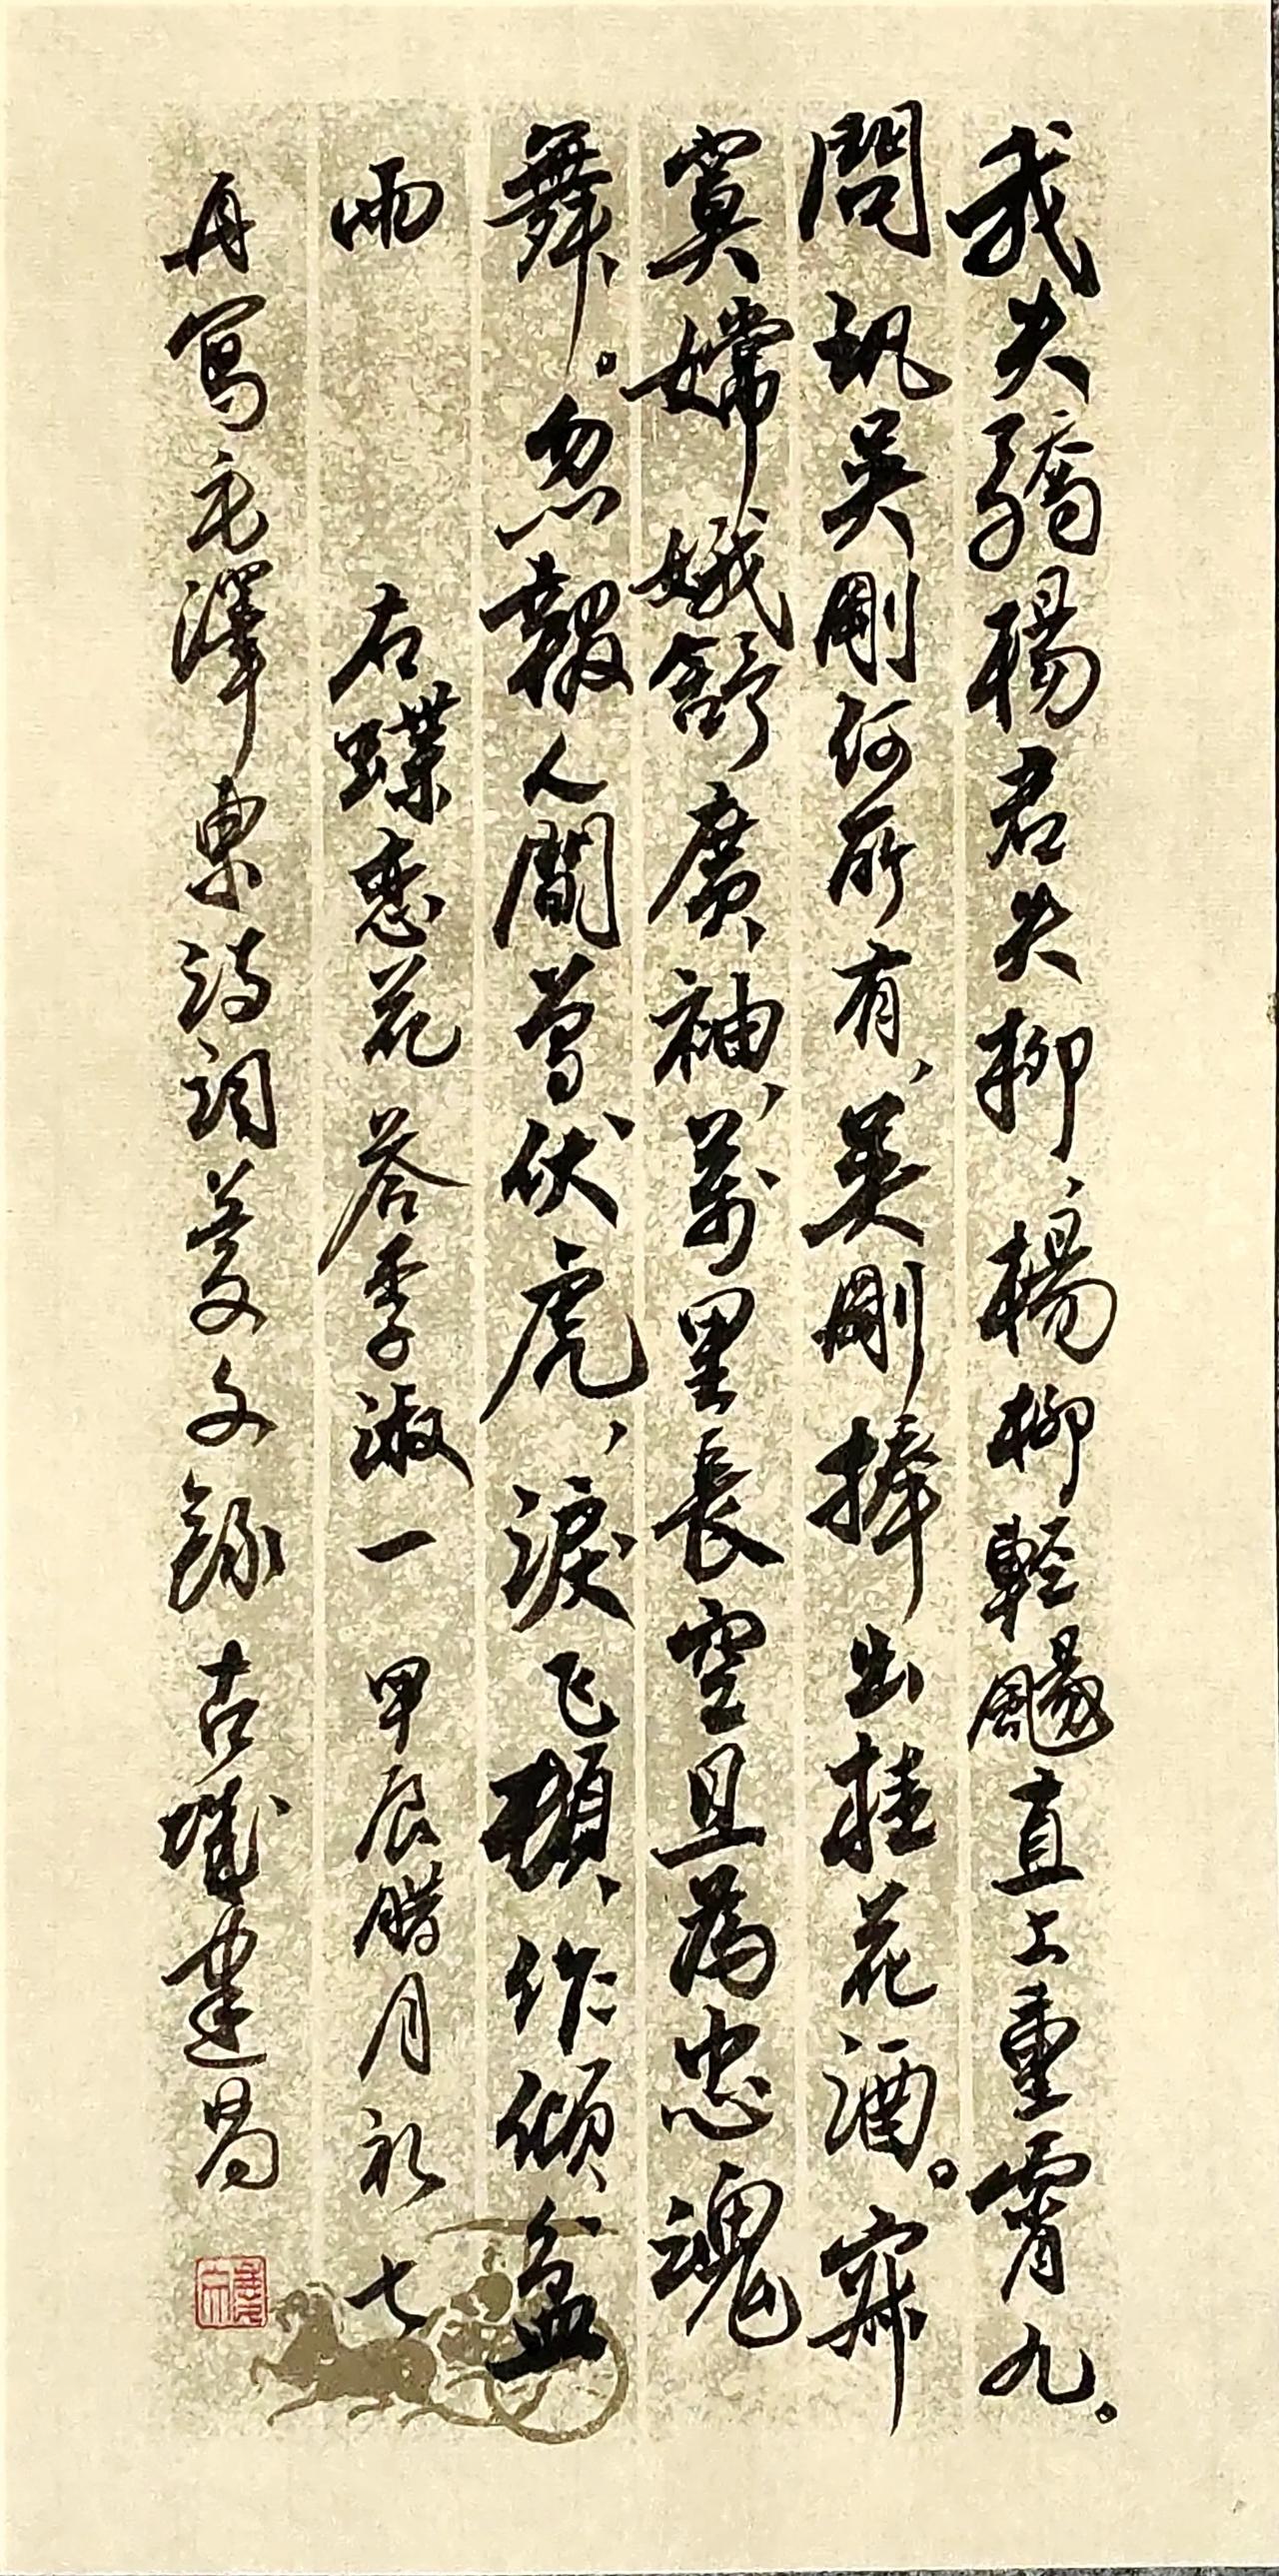 我失驕楊君失柳、楊柳輕颺直上重霄九。
問訊吳剛何所有、吳剛捧出桂花酒。寂
寞嫦娥舒廣袖、萬里長空且為忠魂
舞。忽報人間曾伏虎、淚飞頓作傾盆
雨 右蝶恋花 答李淑一 甲辰腊月初七
再寫毛澤東詩詞 文錄 古城建昌